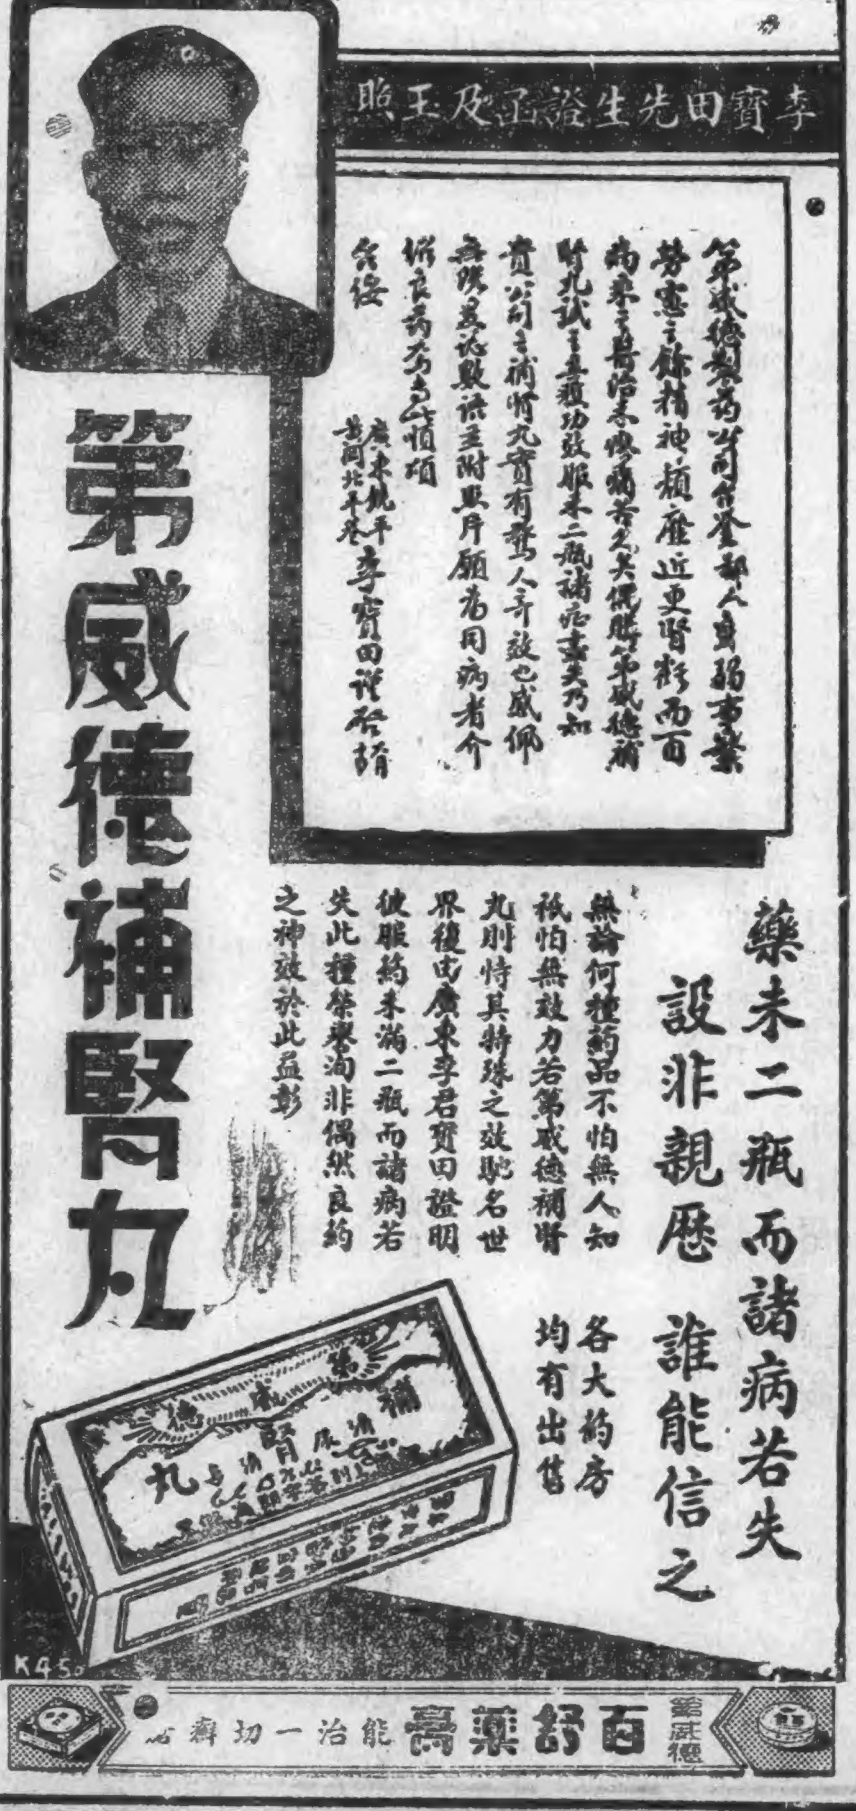 李寶田先生證函及玉照
第威德製药公司台鉴鄙人身弱事繁
勞憲之餘精神頹靡近更腎虧而百
病來之醫治未愈痛苦之至偶購第威德補
腎丸試之立獲功效服未二瓶諸症盡失乃知
貴公司之補腎丸實有驚人奇效也感佩
無既爰誌數語並附照片願為同病者介
紹良药耳专此順頌
台綏
廣東饒平
黃岡北平巷
李寶田謹啓
第威德補腎丸
藥未二瓶而諸病若失
設非親歷 誰能信之
無論何種药品不怕無人知
祇怕無效力若第威德補腎
丸則恃其特殊之效馳名世
界復由廣東李君寶田證明
彼服药未滿二瓶而諸病若
失此種榮譽洵非偶然良药
之神效於此益彰
各大药房
均有出售
第威德
補腎丸
K45
第威德
百舒藥膏
能治一切癬